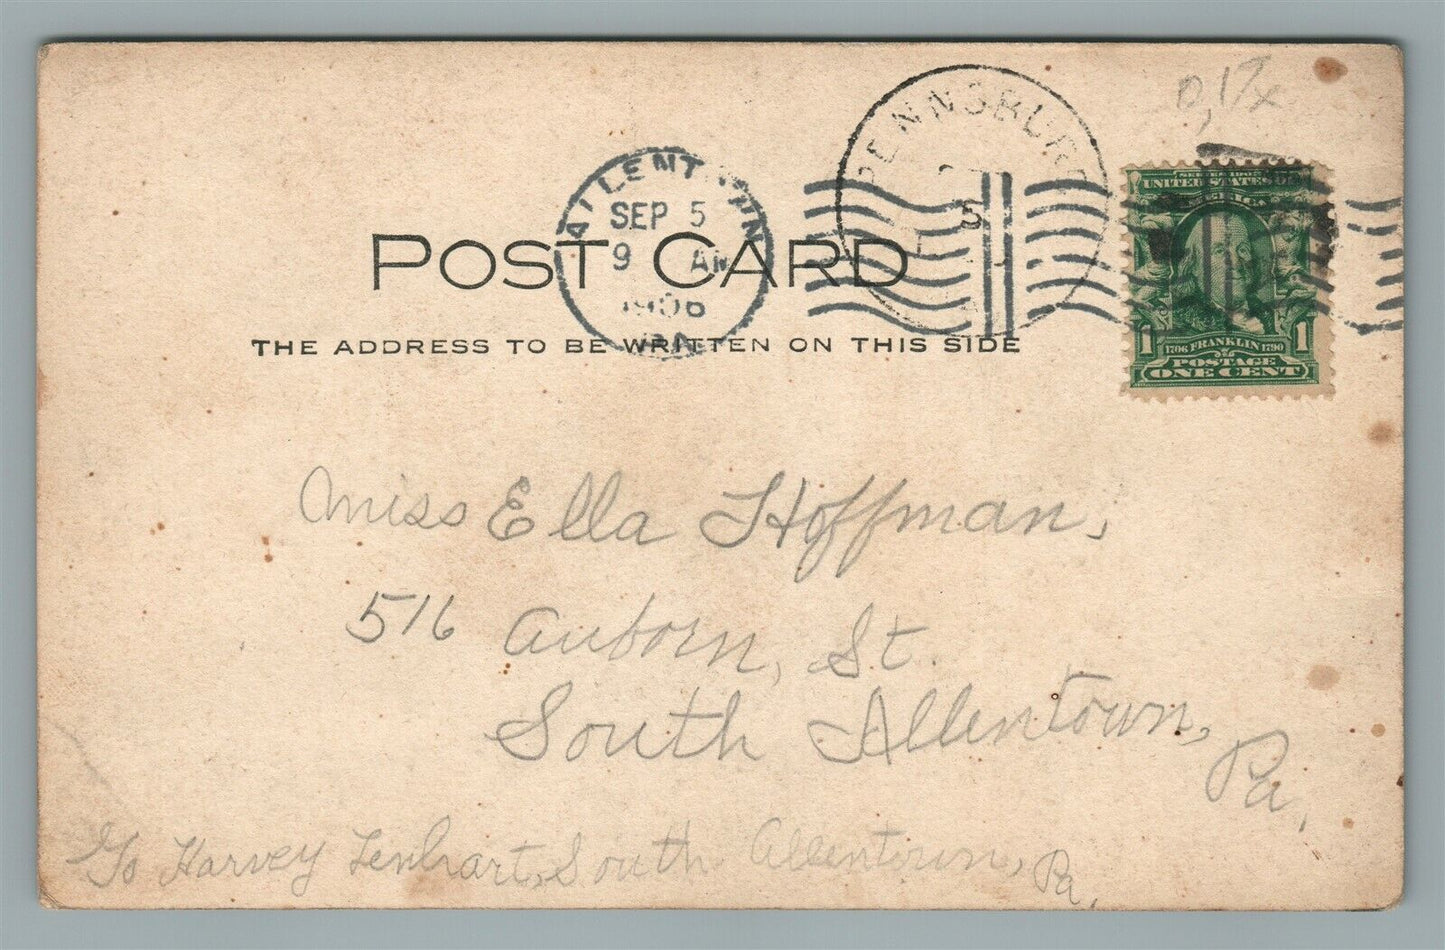 PENNSBURG
5
ALLENTOWN
SEP 5
9 AM
1906
PA.
POST CARD
THE ADDRESS TO BE WRITTEN ON THIS SIDE
SERIES 1902
UNITED STATES OF AMERICA
1706 FRANKLIN 1790
1 1
POSTAGE
ONE CENT
Miss Ella Hoffman,
516 Auborn, St.
South Allentown,
Pa,
c/o Harvey Lenhart, South Allentown, Pa,